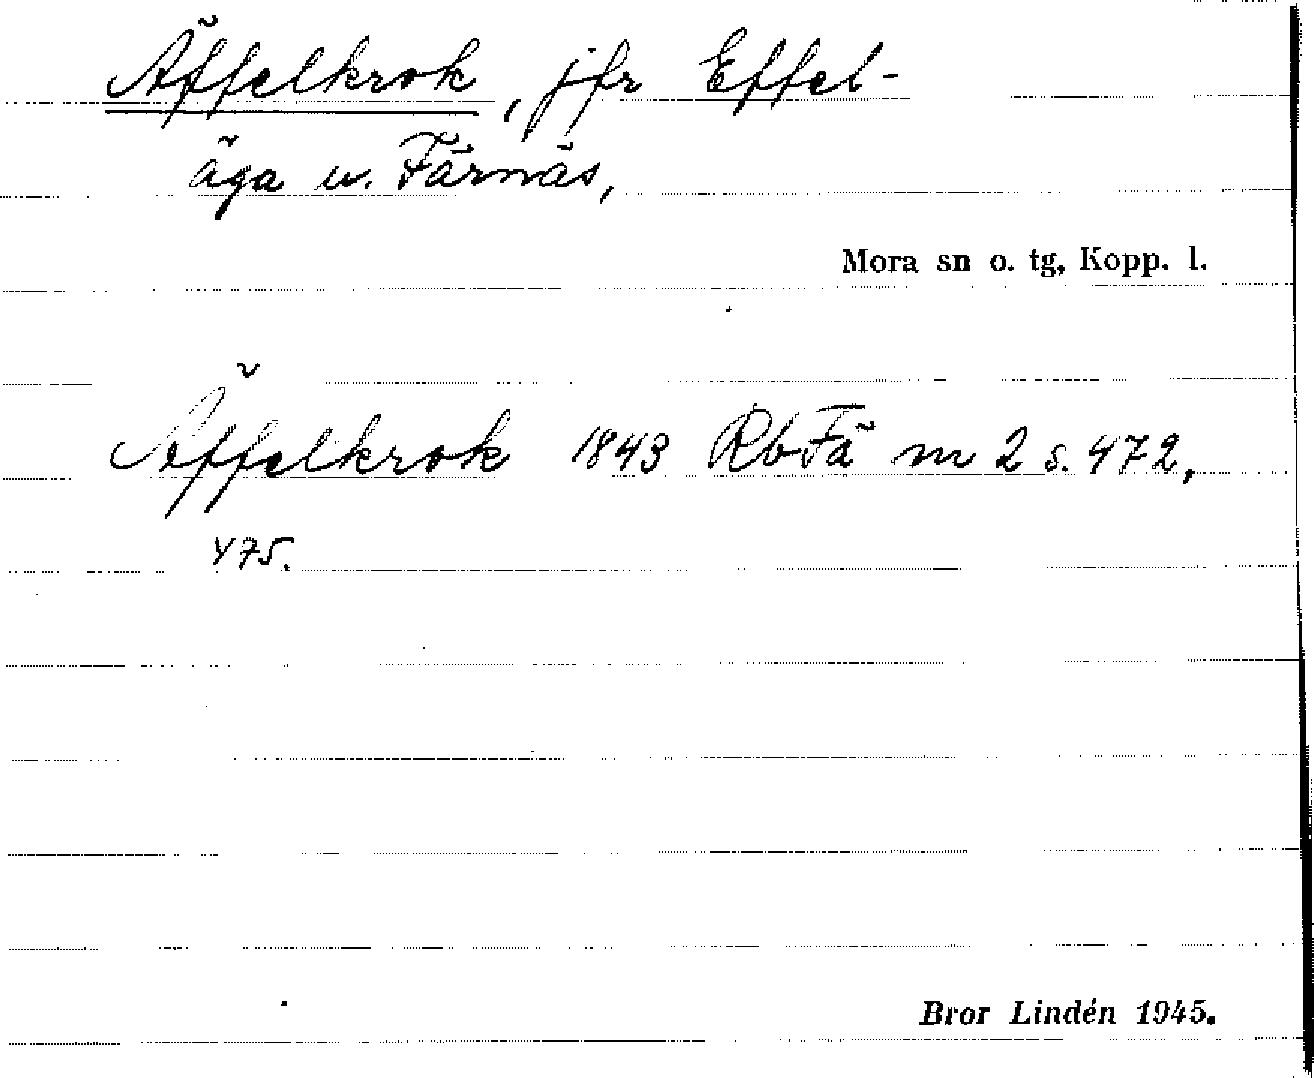 Äffelkrok, jfr Effel-
äga u. Färnäs,
Mora sn o. tg, Kopp. l.
Äffelkrok 1843 RbFä m 2 s. 472,
475.
Bror Lindén 1945.